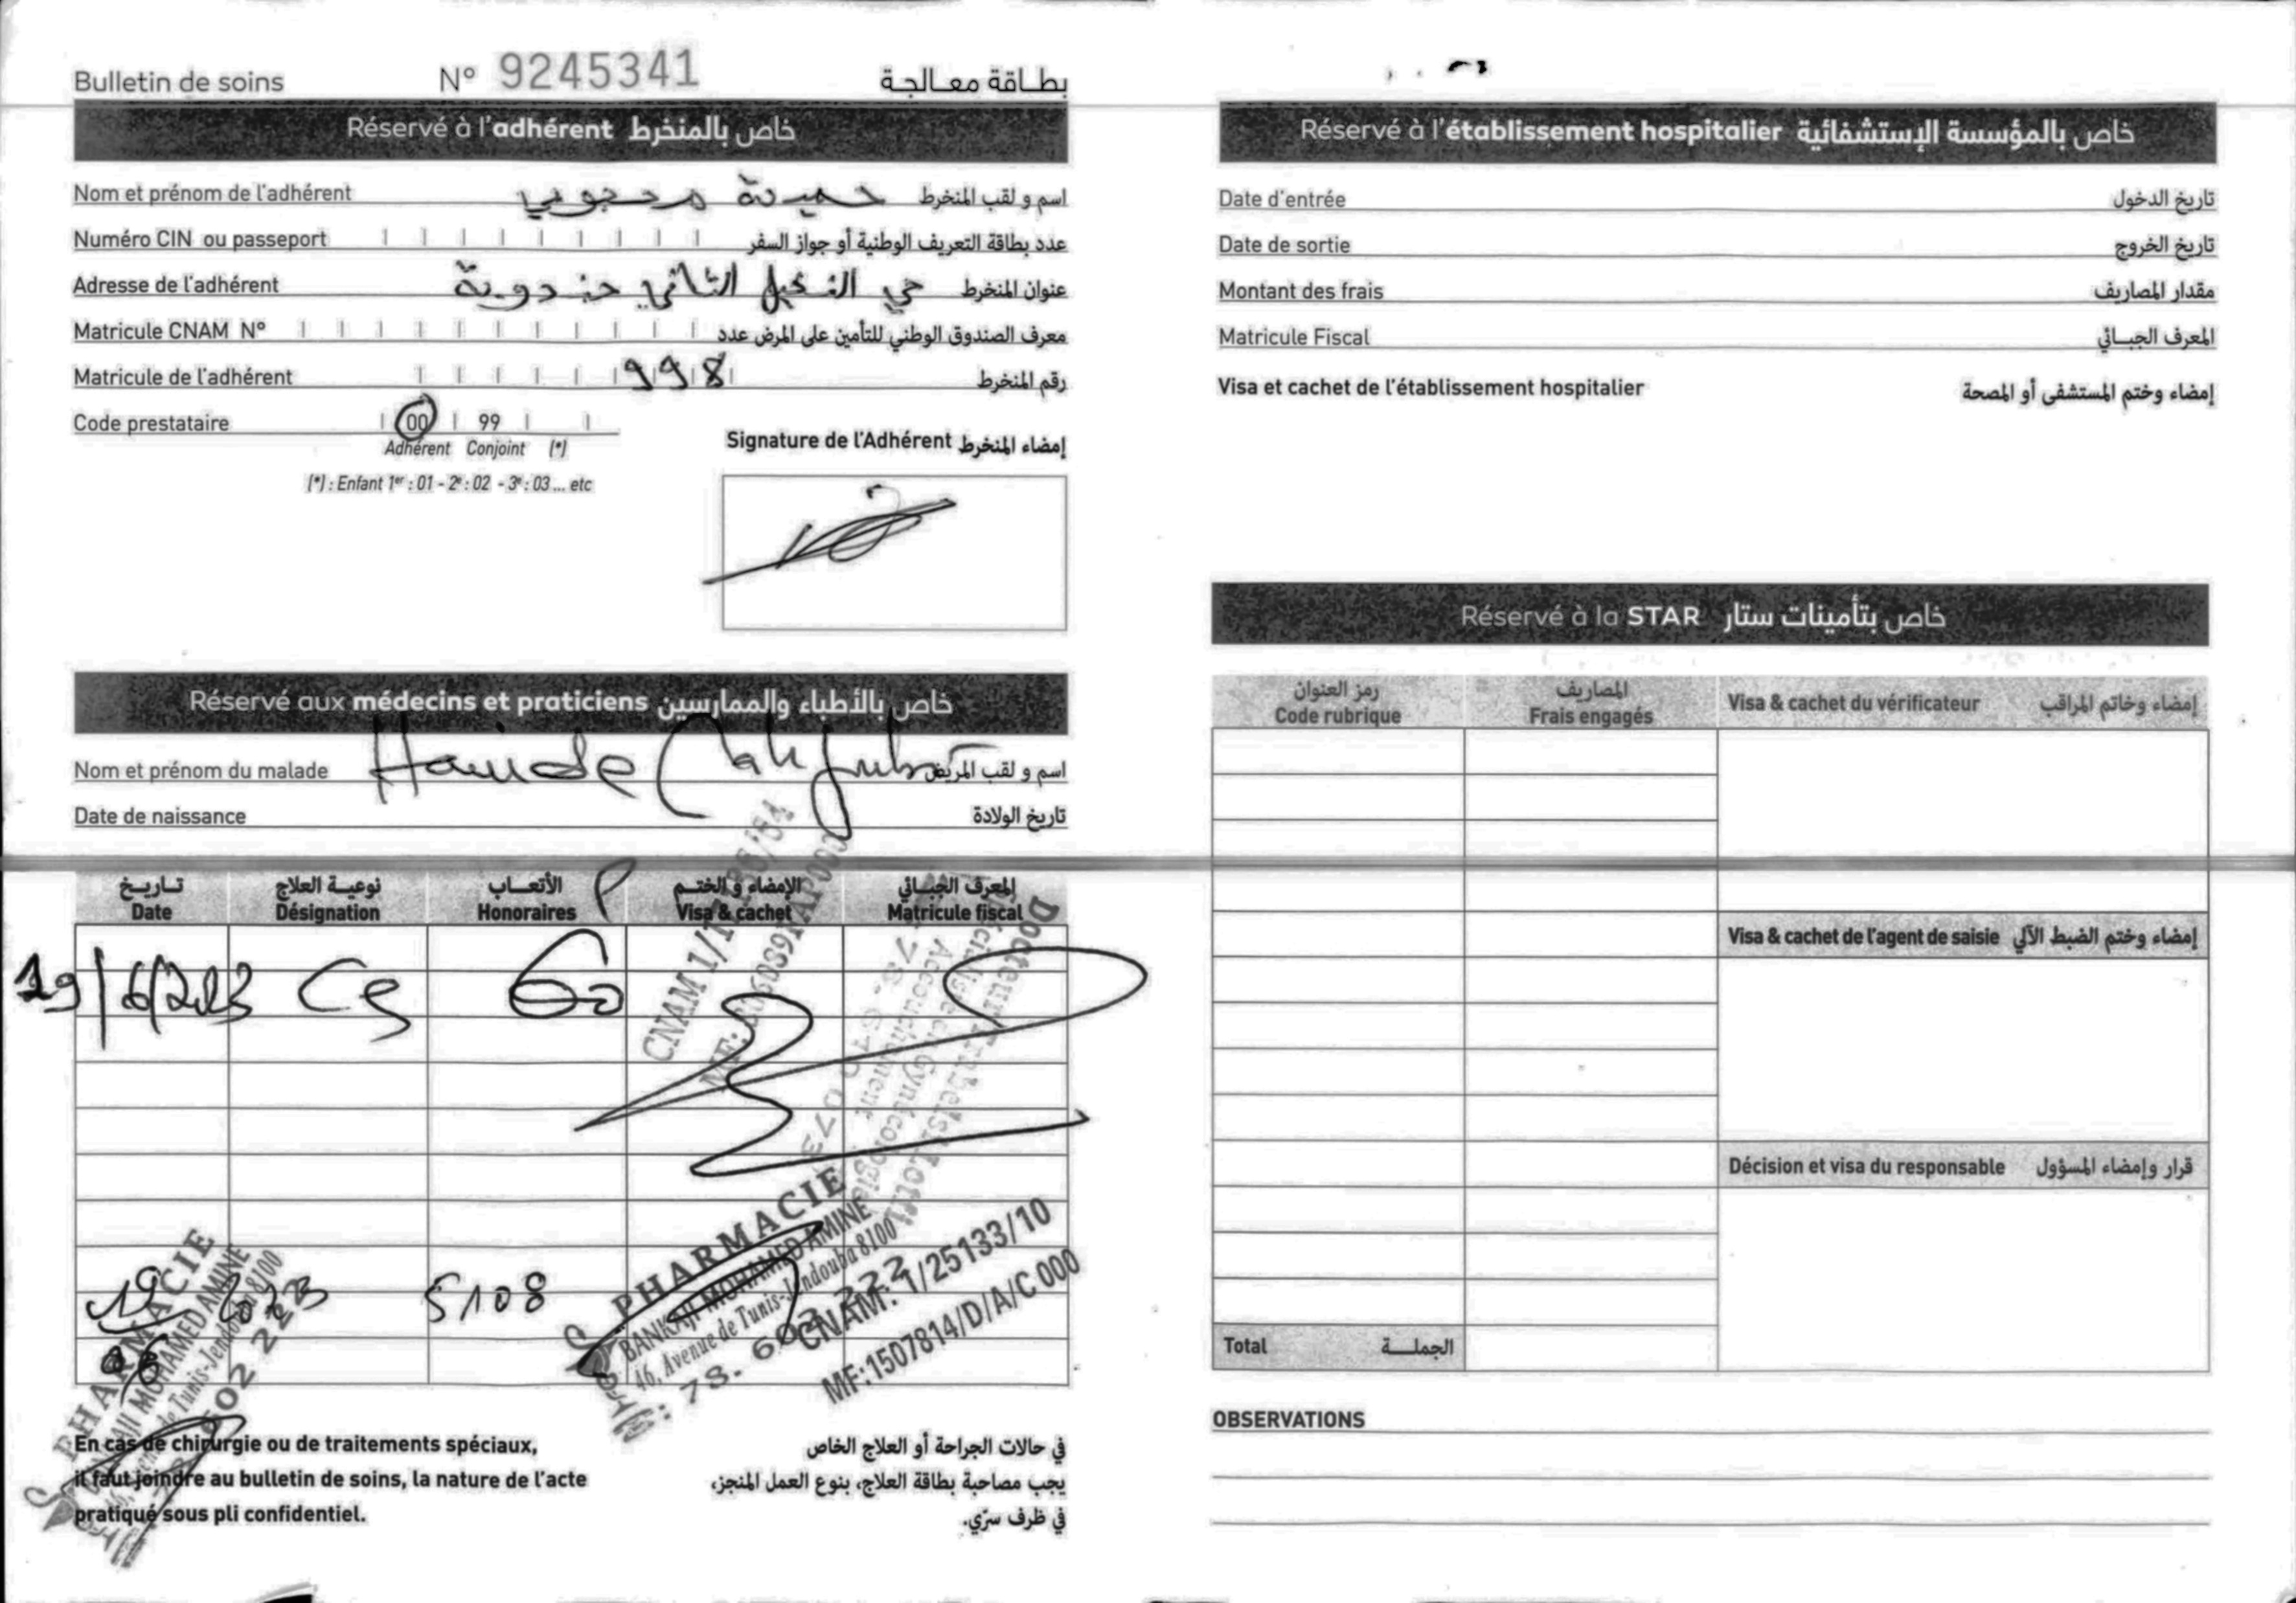 Bulletin de soins N° 9245341 بطاقة معالجة
Réservé à l'adhérent خاص بالمنخرط
Nom et prénom de l'adhérent حميدة محجوبي اسم و لقب المنخرط
Numéro CIN ou passeport عدد بطاقة التعريف الوطنية أو جواز السفر
Adresse de l'adhérent حي النخيل الثاني جندوبة عنوان المنخرط
Matricule CNAM N° معرف الصندوق الوطني للتأمين على المرض عدد
Matricule de l'adhérent 998 رقم المنخرط
Code prestataire 00 99
Adhérent Conjoint (*)
(*) : Enfant 1er : 01 - 2e : 02 - 3e : 03 ... etc
Signature de l'Adhérent إمضاء المنخرط
Réservé aux médecins et praticiens خاص بالأطباء والممارسين
Nom et prénom du malade Hamida Mahjoubi اسم و لقب المريض
Date de naissance تاريخ الولادة
تاريخ نوعية العلاج الأتعاب الإمضاء و الختم المعرف الجبائي
Date Désignation Honoraires Visa & cachet Matricule fiscal
19/6/2023 CS 60
19 2023 5108
06
PHARMACIE
BANKAJI MOHAMED AMINE
46, Avenue de Tunis-Jendouba 8100
78. 602 222
CNAM: 1/25133/10
MF:1507814/D/A/C 000
PHARMACIE
BANKAJI MOHAMED AMINE
46, Avenue de Tunis-Jendouba 8100
602 222
En cas de chirurgie ou de traitements spéciaux,
il faut joindre au bulletin de soins, la nature de l'acte
pratiqué sous pli confidentiel.
في حالات الجراحة أو العلاج الخاص
يجب مصاحبة بطاقة العلاج، بنوع العمل المنجز،
في ظرف سرّي.
Réservé à l'établissement hospitalier خاص بالمؤسسة الإستشفائية
Date d'entrée تاريخ الدخول
Date de sortie تاريخ الخروج
Montant des frais مقدار المصاريف
Matricule Fiscal المعرف الجبائي
Visa et cachet de l'établissement hospitalier إمضاء وختم المستشفى أو المصحة
Réservé à la STAR خاص بتأمينات ستار
رمز العنوان المصاريف
Code rubrique Frais engagés Visa & cachet du vérificateur إمضاء وخاتم المراقب
Visa & cachet de l'agent de saisie إمضاء وختم الضبط الآلي
Décision et visa du responsable قرار وإمضاء المسؤول
Total الجملة
OBSERVATIONS